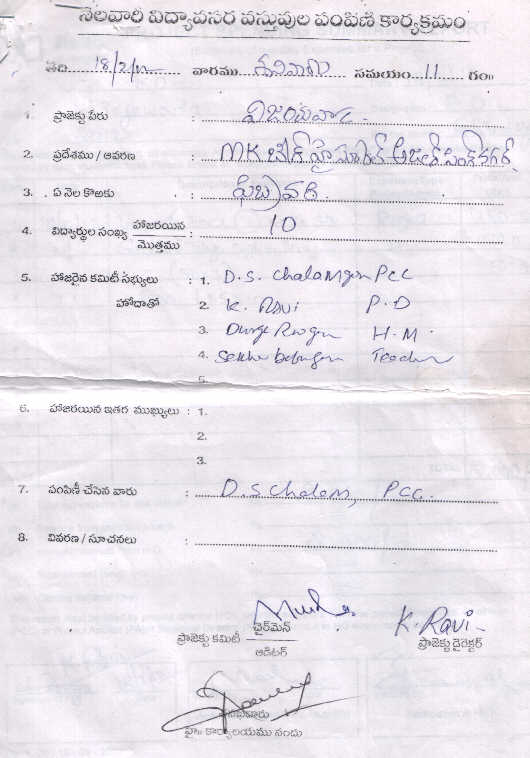 నెలవారి విద్యావసర వస్తువుల పంపిణి కార్యక్రమం
తేది 18/2/ వారము శనివారం సమయం 11 గం॥
1. ప్రాజెక్టు పేరు : విజయవాడ
2. ప్రదేశము / ఆవరణ : MK బైబిల్ హైస్కూల్ అజిత్ సింగ్ నగర్
3. ఏ నెల కొఱకు : ఫిబ్రవరి
4. విద్యార్థుల సంఖ్య హాజరయిన / మొత్తము : 10
5. హాజరైన కమిటీ సభ్యులు : 1. D.S. Chalam PCC
హోదాతో 2. K. Ravi P.D
3. H.M.
4. Teacher
5.
6. హాజరయిన ఇతర ముఖ్యులు : 1.
2.
3.
7. పంపిణీ చేసిన వారు : D.S Chalam, PCC.
8. వివరణ / సూచనలు :
ప్రాజెక్టు కమిటీ ఛైర్మెన్ / ఆడిటర్
K. Ravi
ప్రాజెక్టు డైరెక్టర్
హై॥ కార్యాలయము నందు